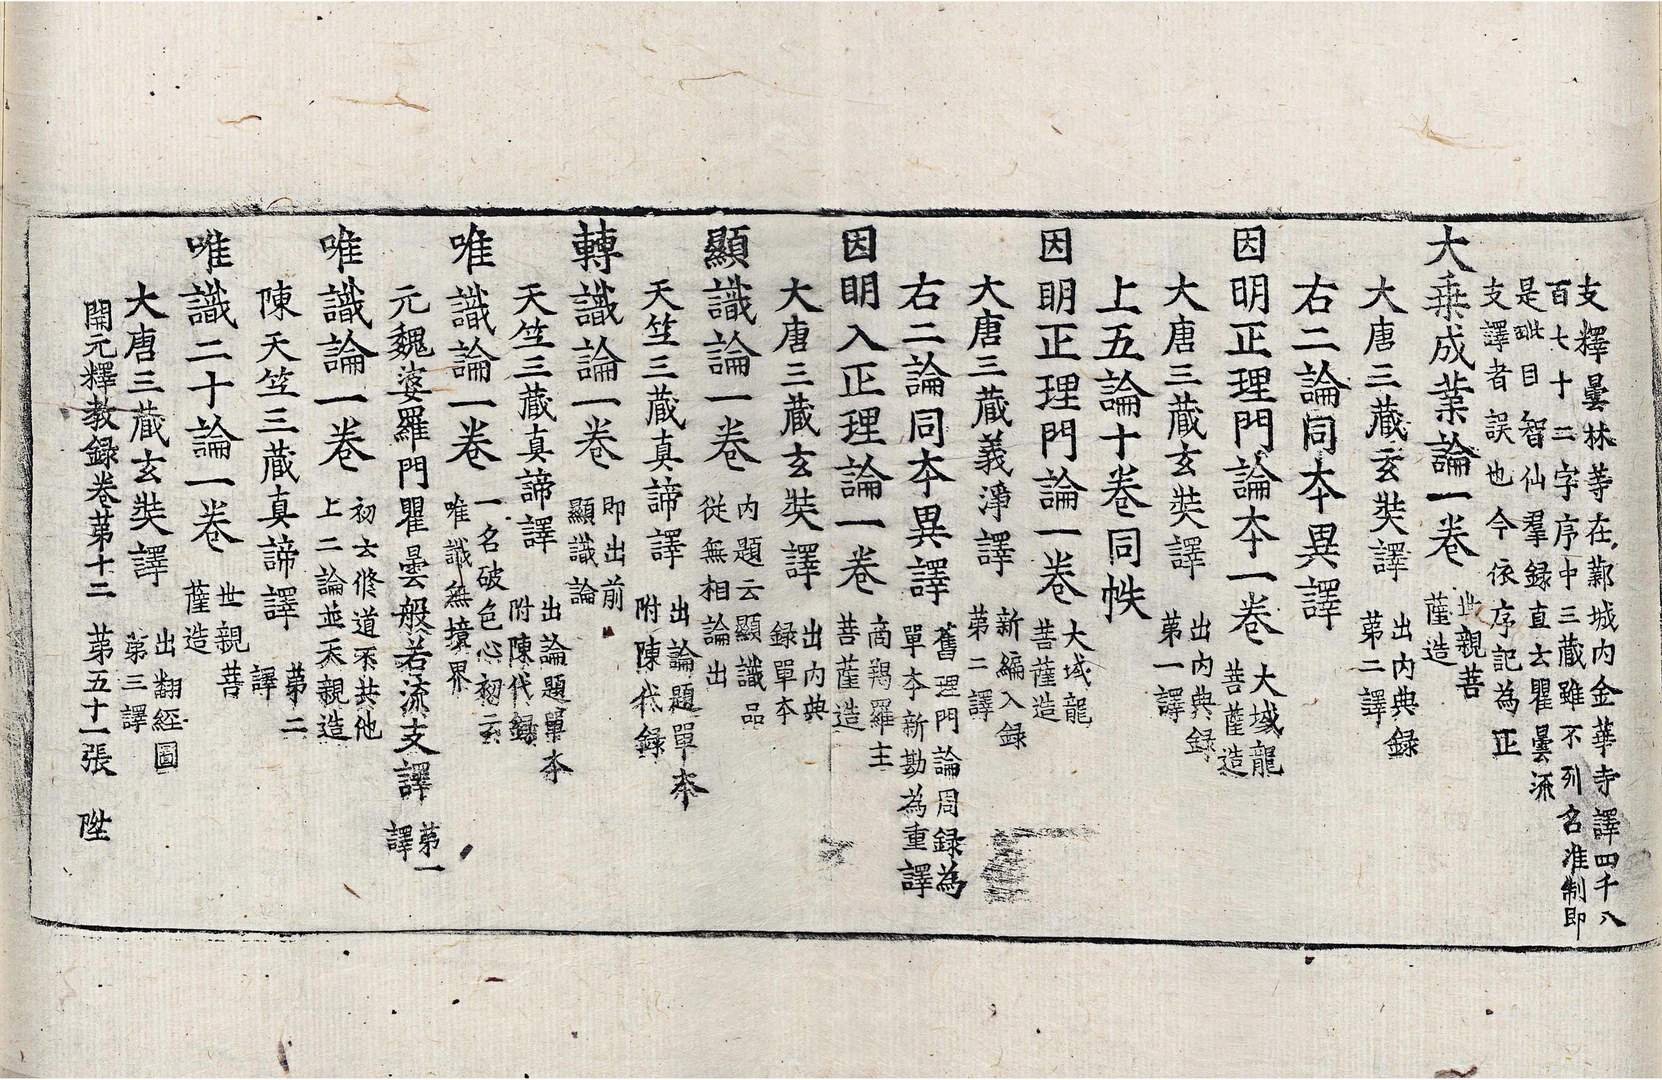 支釋曇林等在鄴城內金華寺譯四千八
百七十二字序中三藏雖不列名准制即
是㘽目智仙羣録直云瞿曇流
支譯者誤也今依序記為正
大乗成業論一卷 世親菩薩造
大唐三藏玄奘譯 出內典録第二譯
右二論同夲異譯
因明正理門論夲一卷 大域龍菩薩造
大唐三藏玄奘譯 出內典録第一譯
上五論十卷同帙
因明正理門論一卷 大域龍菩薩造
大唐三藏義淨譯 新編入録第二譯
右二論同夲異譯 舊理門論周録為單夲新勘為重譯
因明入正理論一卷 商羯羅主菩薩造
大唐三藏玄奘譯 出內典録單夲
顯識論一卷 內題云顯識品從無相論出
天竺三藏真諦譯 出論題單夲附陳代録
轉識論一卷 即出前顯識論
天竺三藏真諦譯 出論題單夲附陳代録
唯識論一卷 一名破色心初云唯識無境界
元魏婆羅門瞿曇般若流支譯 第一譯
唯識論一卷 初云修道不共他上二論並天親造
陳天竺三藏真諦譯 第二譯
唯識二十論一卷 世親菩薩造
大唐三藏玄奘譯 出翻經圖第三譯
開元釋教録卷第十二 第五十一張 陞